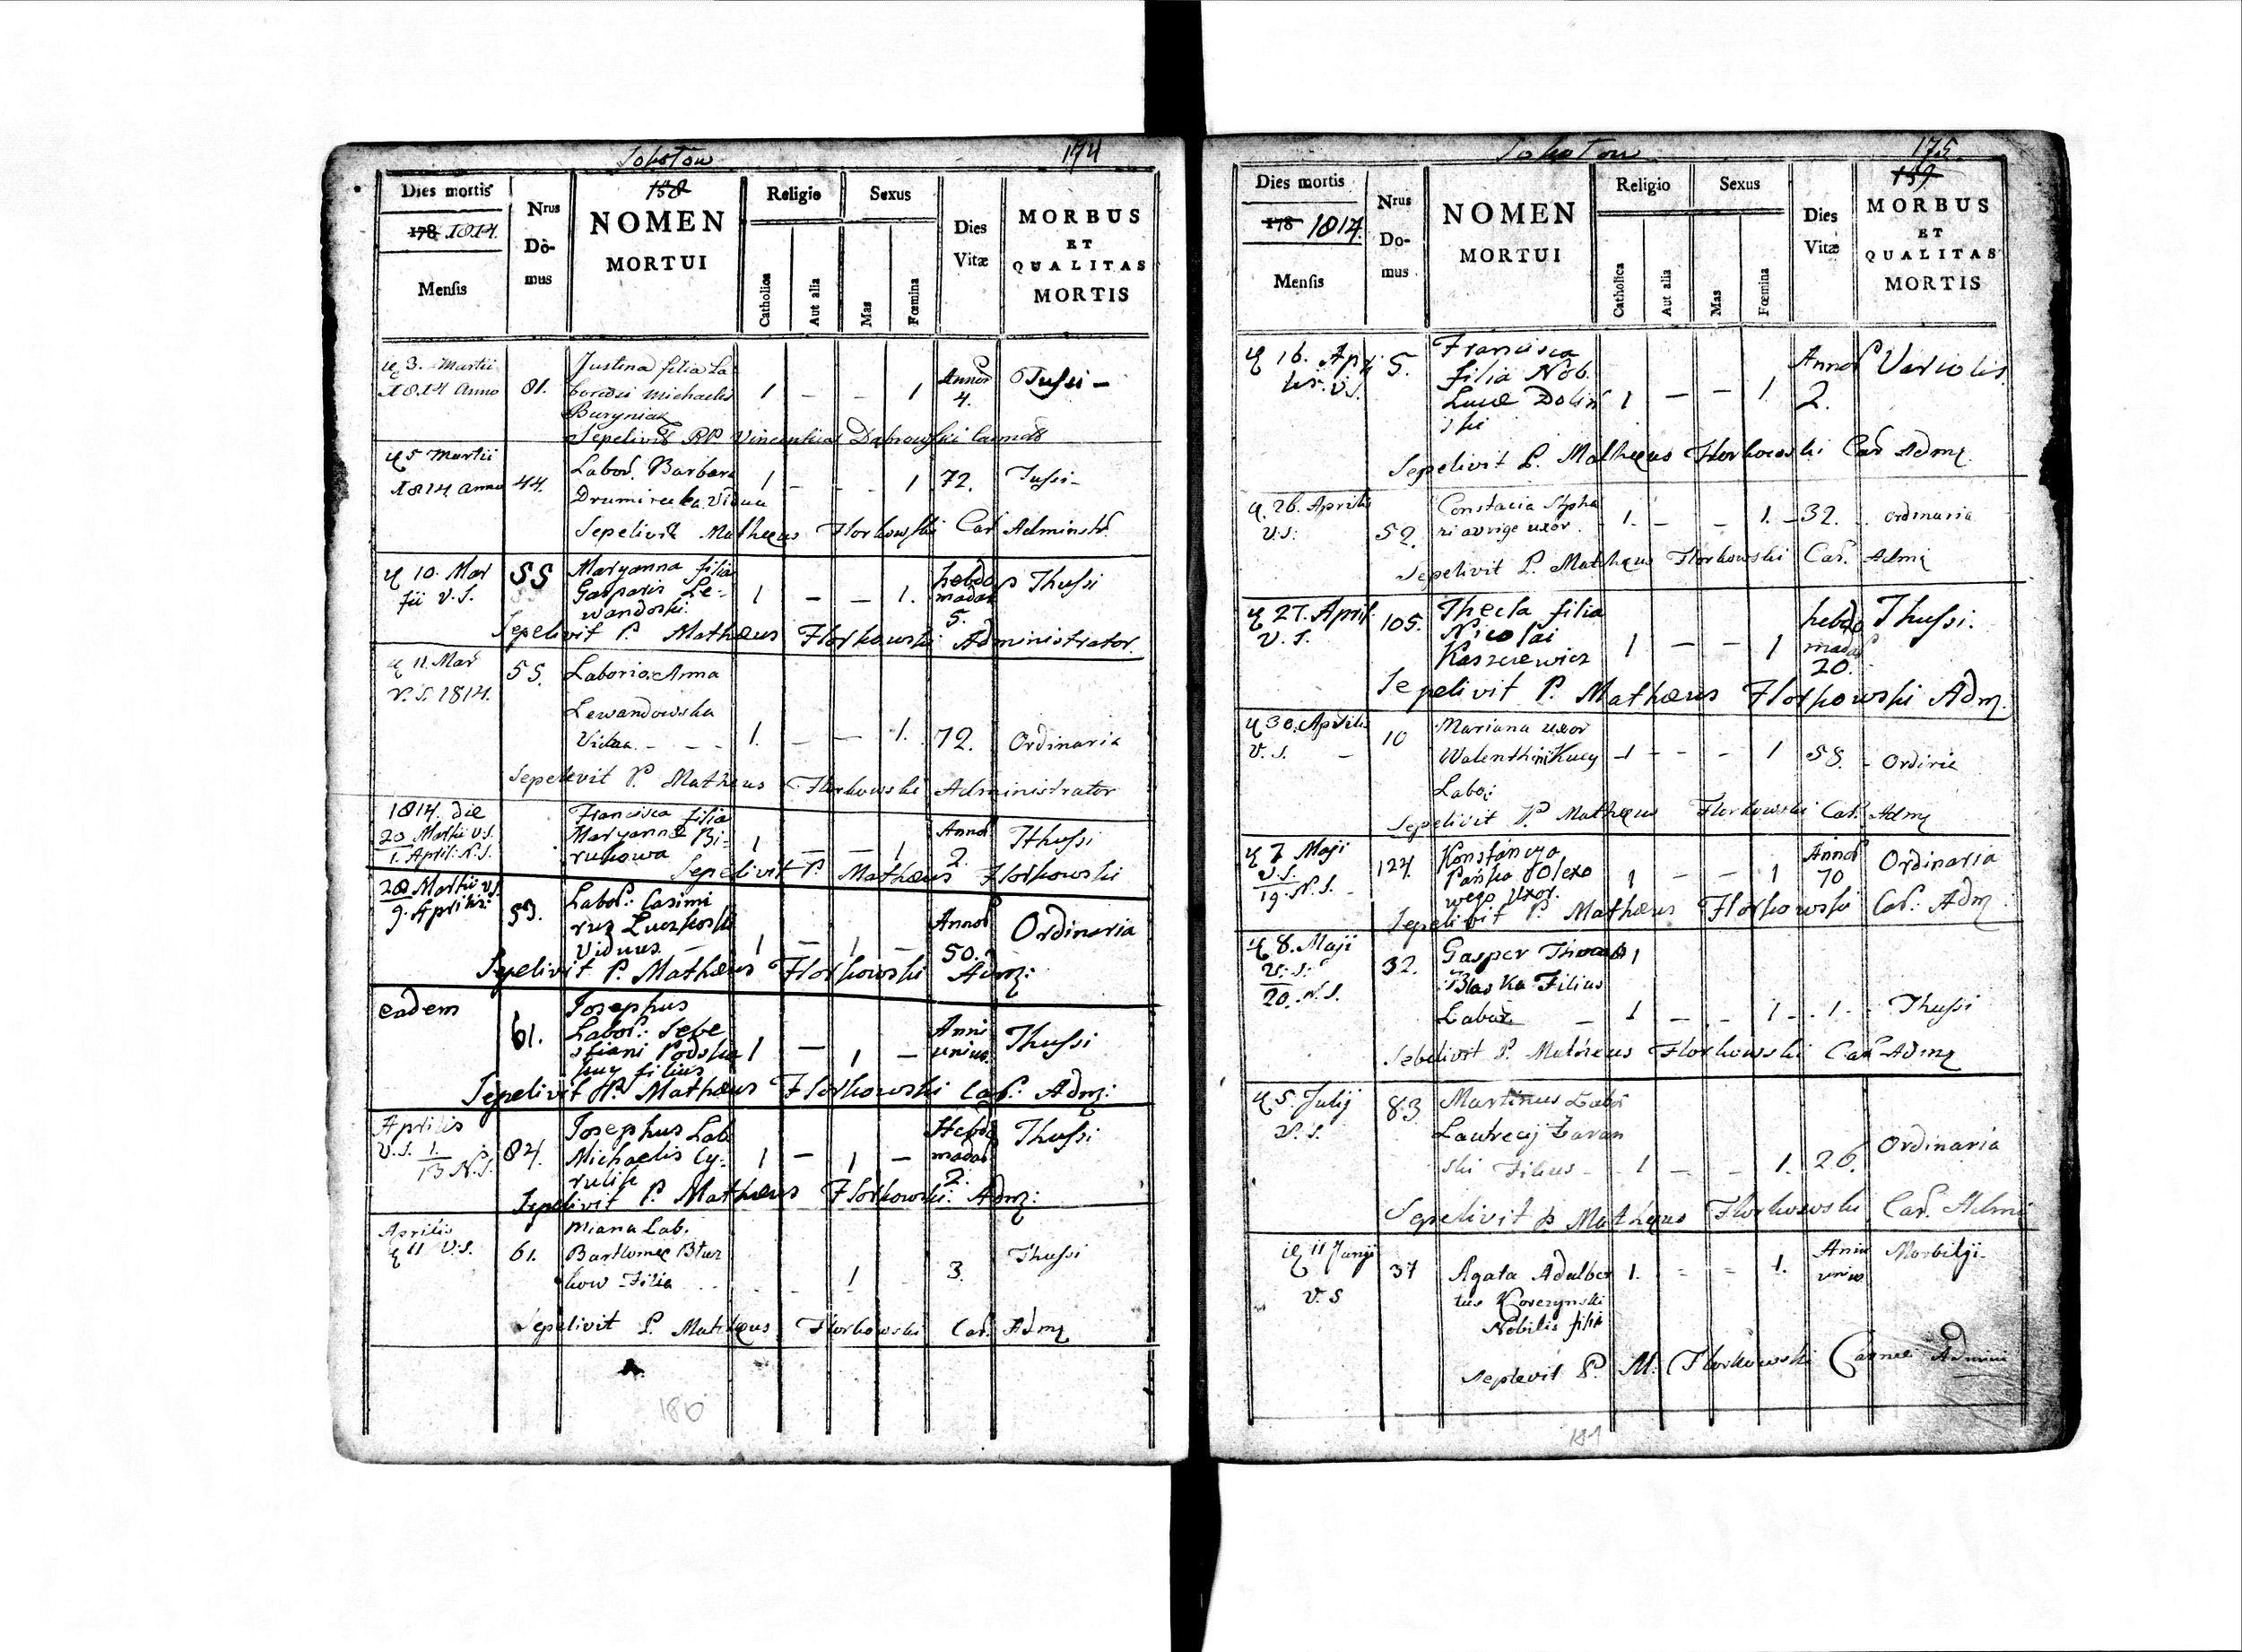 174
Dies mortis
178 1814.
Mensis
Nrus
Dô-
mus
158
NOMEN
MORTUI
Religio
Catholica
Aut alia
Sexus
Mas
Fœmina
Dies
Vitæ
MORBUS
ET
QUALITAS
MORTIS
3. Martii
1814 Anno
81.
Justina filia La
boriosi Michaelis
Buryniak
1 - - 1
Annor
4.
Tussi -
Sepelivit RP Vincentius Dąbrowski
5 Martii
1814 Anno
44.
Labor. Barbara
Vidua
1 - - 1
72.
Tussi -
Sepelivit Mathæus Florkowski Cap Adminstr.
10. Mar
tii V.S.
55
Maryanna filia
Gasparis Le-
wandoski.
1 - - 1.
hebdo
madas
5.
Thussi
Sepelivit P. Mathæus Florkowski Administrator.
11. Mar
V.S. 1814.
55.
Laborio. Anna
Lewandowska
Vidua - - -
1. - - 1.
72.
Ordinaria
Sepelevit P. Matheus Florkowski Administrator
1814. die
20 Martii V.S.
1. April: N.S.
Francisca filia
Maryannæ Bi-
rukowa
1 - - 1
Annor
2.
Thussi
Sepelivit P. Mathæus Florkowski
28 Martii V.S.
9. Aprilis:
53.
Labor: Casimi
rus
Viduus. -
1 - 1 -
Annor
50.
Ordinaria
Sepelivit P. Mathæus Florkowski Adm:
eadem
61.
Josephus
Labor: Sebe
stiani
filius
1 - 1 -
Anni
unius.
Thussi
Sepelivit P. Mathæus Florkowski Cap: Adm:
Aprilis
V.S. 1.
13 N.S.
84.
Josephus Lab
Michaelis Cy-
rulik
1 - 1 -
Hebdo
madas
2.
Thussi
Sepelivit P. Mathæus Florkowski: Adm:
Aprilis
11 V.S.
61.
Lab.
kow Filia
1
3.
Thussi
Sepelivit P. Mathæus Florkowski Cap. Adm
180
175
Dies mortis
178 1814.
Mensis
Nrus
Do-
mus
NOMEN
MORTUI
Religio
Catholica
Aut alia
Sexus
Mas
Fœmina
Dies
Vitæ
159
MORBUS
ET
QUALITAS
MORTIS
16. Apr
V.S.
5.
Francisca
filia Nob.
Lucæ Dolin
ski
1 - - 1
Annor
2.
Variolis
Sepelivit P. Mathæus Florkowski Cap Adm
26. Aprilis
V.S:
52.
aurige uxor.
1. - - 1. -
32.
ordinaria
Sepelivit P. Mathæus Florkowski Cap. Adm
27. April.
V.S.
105.
Thecla filia
Nicolai
Kaszerewicz
1 - - 1
hebdo
madas
20.
Thussi.
Sepelivit P. Mathæus Florkowski Adm.
30. Aprilis
V.S. -
10
Mariana uxor
Labo:
1 - - 1
58.
Sepelivit P. Mathæus Florkowski Cap. Adm
7 Maji
V.S.
19. N.S.
124.
Konstancya
Pańka Olexo
wego Uxor.
1 - - 1
Annor
70
Ordinaria
Sepelivit P. Mathæus Florkowski Cap: Adm:
8. Maji
V.S.
20. N.S.
32.
Gasper
Filius
Labor. -
1 - - 1 -
1 -
Thussi
Sepelivit P. Mathæus Florkowski Cap Adm
5. Julij
V.S.
83
Martinus Labor
ski Filius -
1 - - 1.
26.
Ordinaria
Sepelivit P Mathæus Florkowski Cap. Admi
11 Junji
V.S
37
Agata Adalber
tus Korczynski
Nobilis filia
1. - - 1.
Anni
unius
Morbilji -
Sepelevit P. M. Florkowski Admini
181